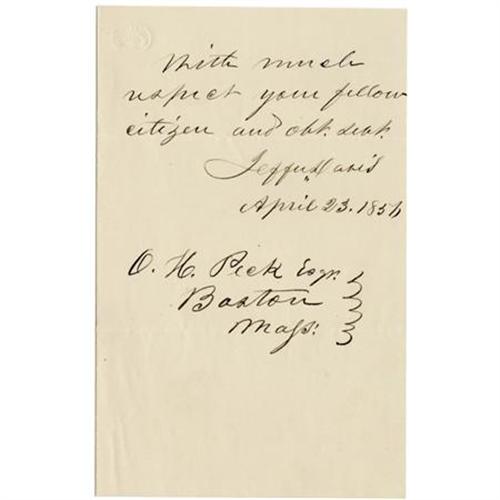 With much
respect your fellow
citizen and obt. servt.
Jeffn. Davis
April 23. 1856
O. H. Peck Esqr.
Boston
Mass: